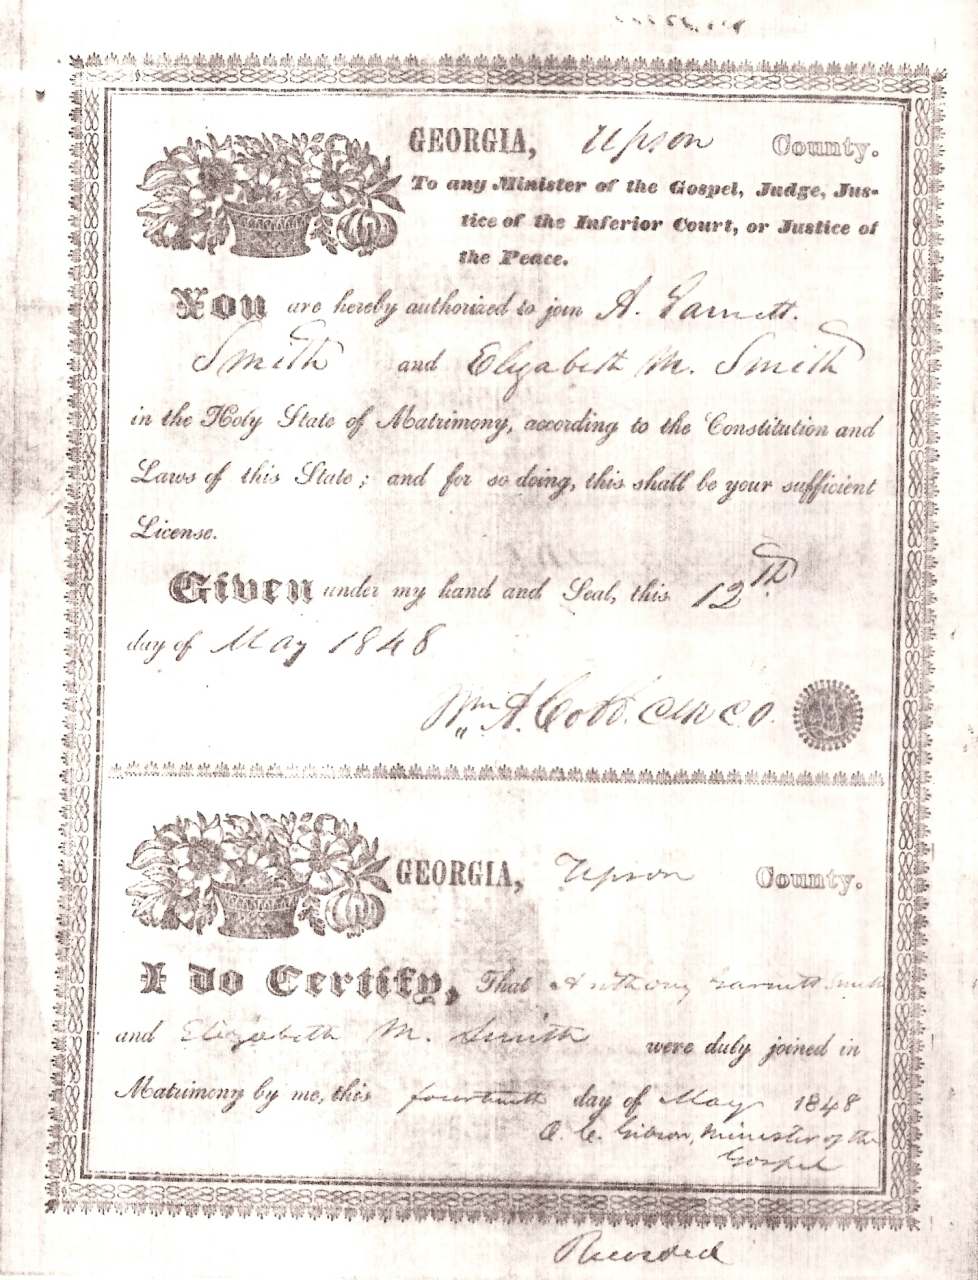 GEORGIA, Upson County.
To any Minister of the Gospel, Judge, Jus-
tice of the Inferior Court, or Justice of
the Peace.
You are hereby authorized to join A. Garnett.
Smith and Elizabeth M. Smith
in the Holy State of Matrimony, according to the Constitution and
Laws of this State; and for so doing, this shall be your sufficient
License.
Given under my hand and Seal, this 12th
day of May 1848
Wm A. Cobb. C.C.O.
GEORGIA, Upson County.
I do Certify, That Anthony Garnett Smith
and Elizabeth M. Smith were duly joined in
Matrimony by me, this fourteenth day of May 1848
Gibson, Minister of the
Gospel
Recorded